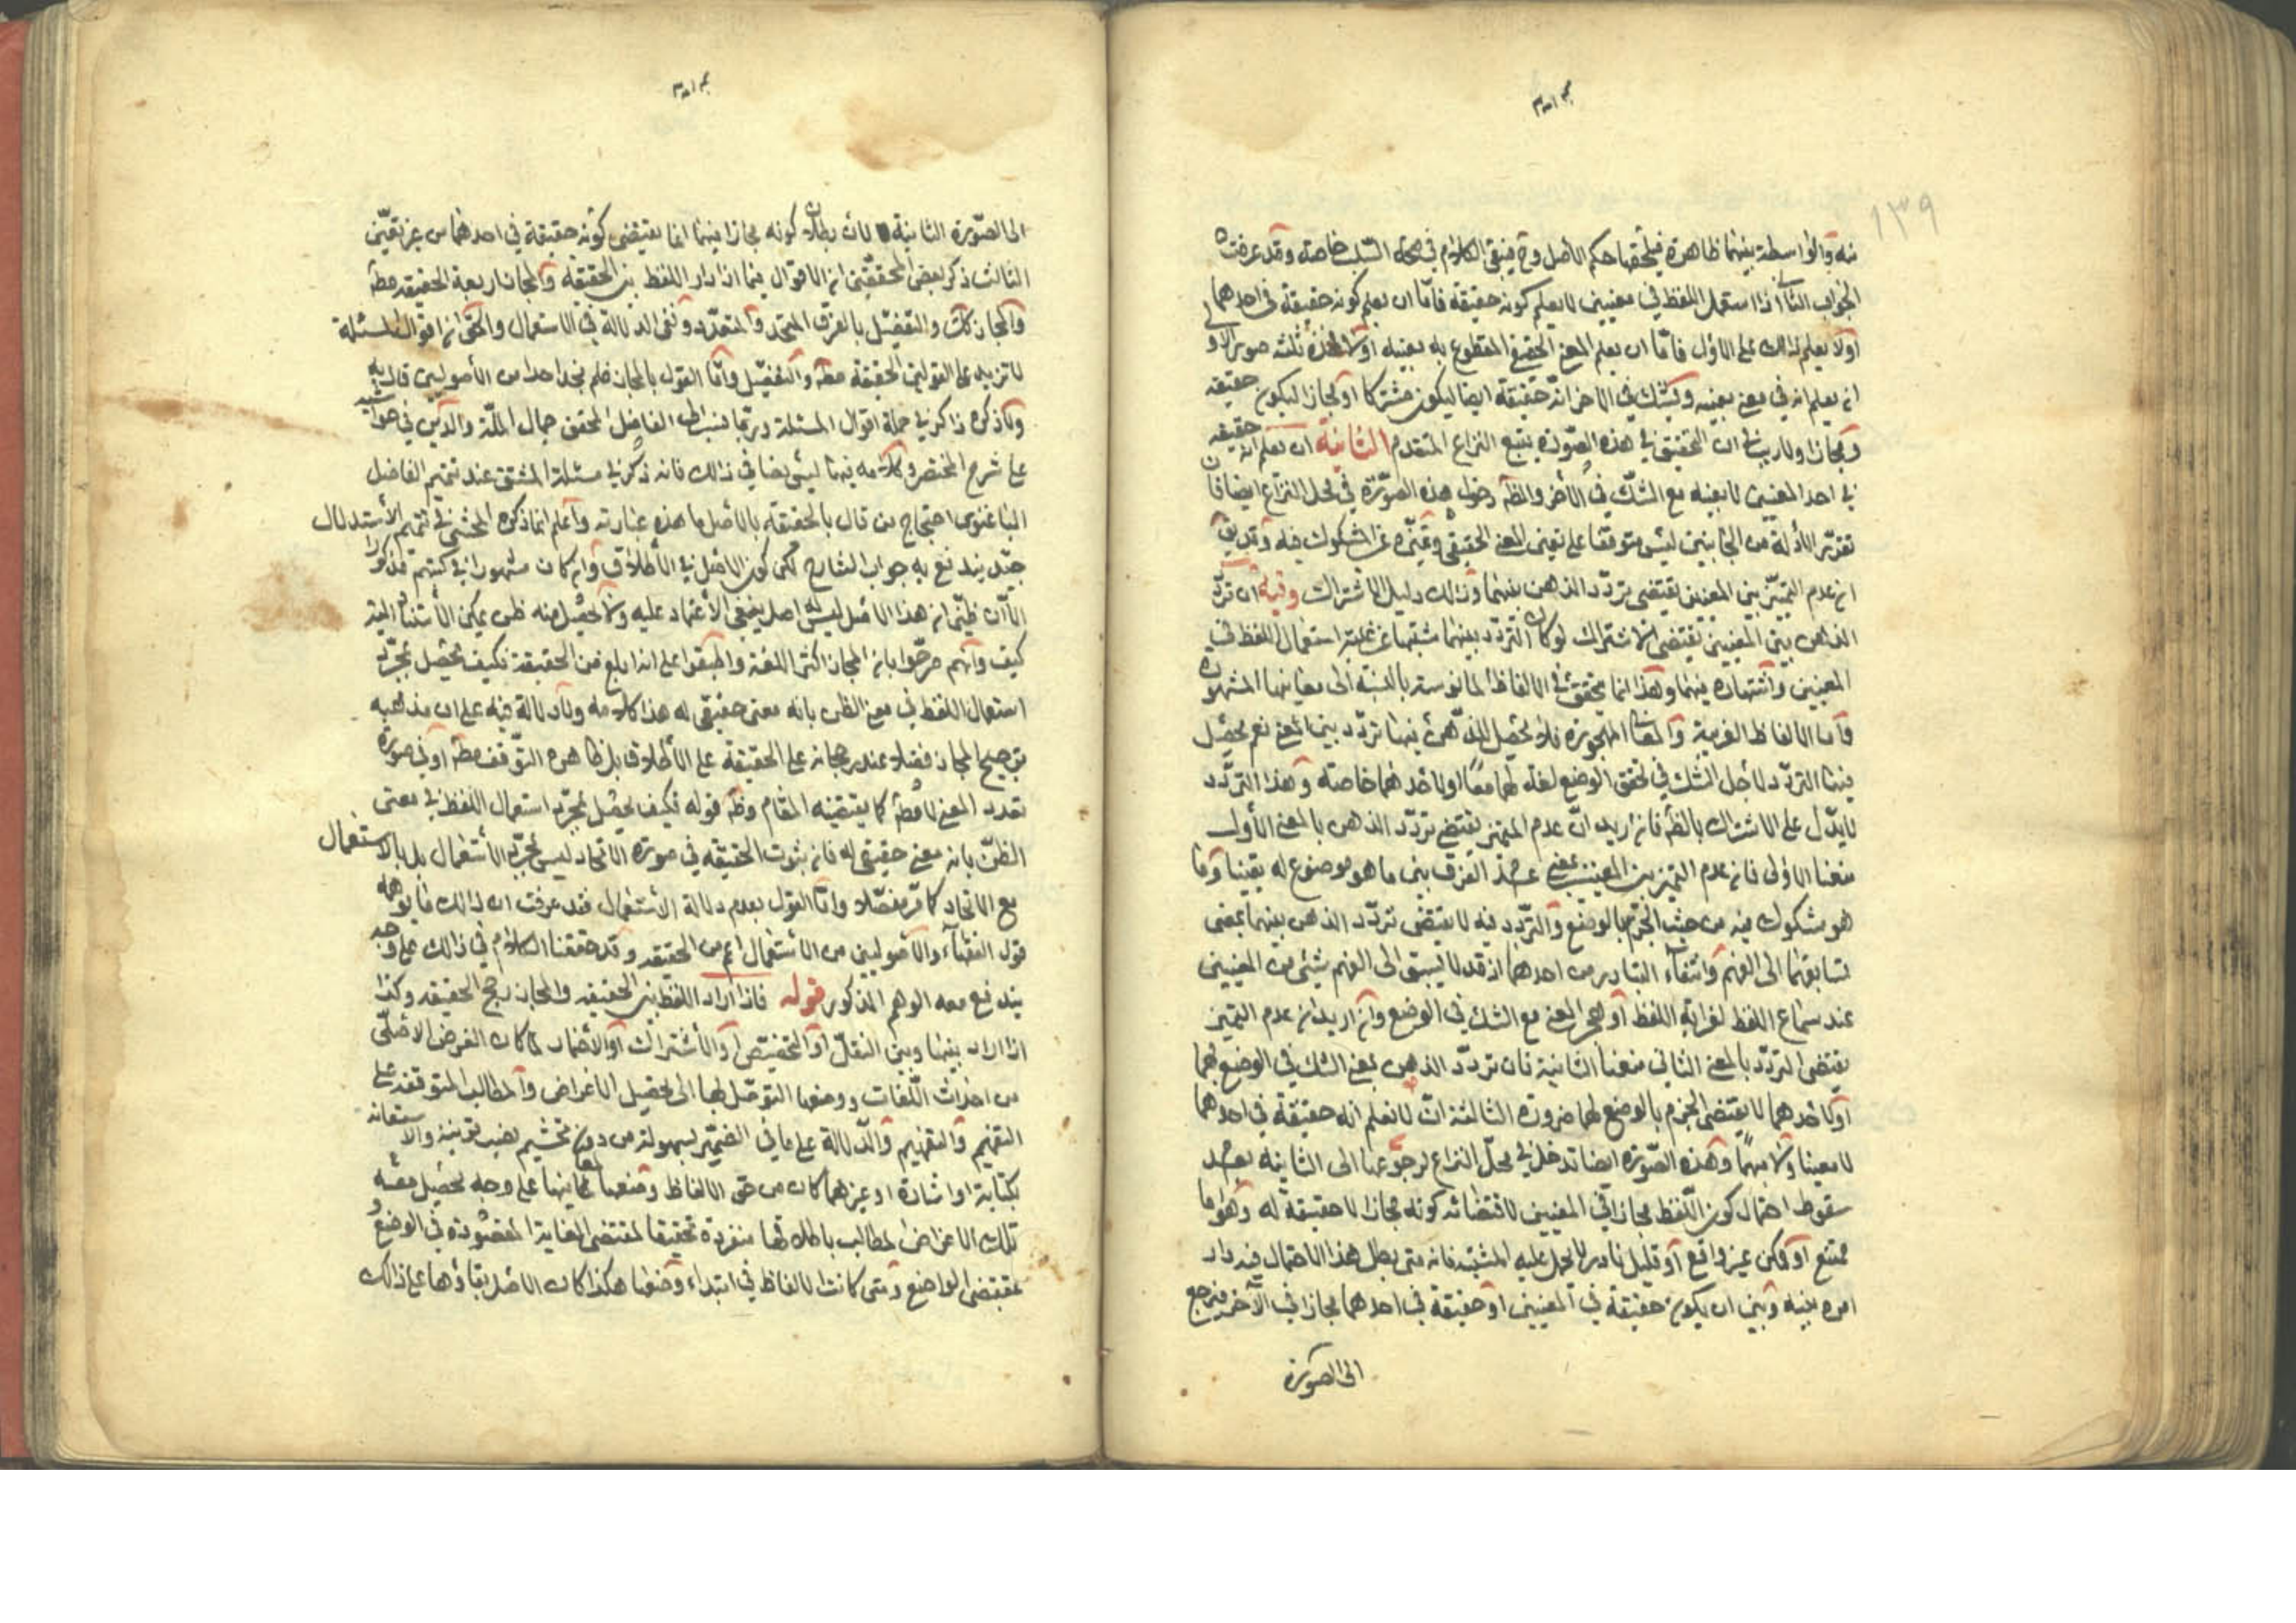 ١٣٩
منه والواسطة بينهما ظاهرة فيلحقها حكم الاصل وح فينبغى الكلام فى صحة السلب خاصة وقد عرفت
الجواب الثانى اذا استعمل اللفظ فى معنيين لا يعلم كونه حقيقة فامّا ان يعلم كونه حقيقة فى احدهما
اولا يعلم ذالك على الاول فامّا ان يعلم المعنى الحقيقى المقطوع به بعينه اولا فهذه ثلثه صور الاولى
ان يعلم انه فى معنى بعينه ويشك فى الاخر انّه حقيقة ايضا ليكون مشتركا او مجازا ليكون حقيقه
ومجازا ولا ريب فى ان التحقيق فى هذه الصّورة يتبع النزاع المتقدم الثانية ان يعلم انه حقيقه
فى احد المعنيين لا بعينه مع الشكّ فى الأخر والظّ دخول هذه الصّورة فى محل النزاع ايضا فان
تقرير الأدلة من الجانبين ليس متوقفا على تعين المعنى الحقيقى وتميّزه عن المشكوك فيه وقد يق
ان عدم التميّز بين المعنيين يقتضى تردّد الذهن بينهما وذالك دليل الاشتراك وفيه ان تردّد
الذهن بين المعنيين يقتضى الاشتراك لو كان التردّد بينهما مسببا عن غلبة استعمال اللفظ فى
المعنيين واشتهاره فيهما وهذا انما يتحقق فى الالفاظ المانوسة بالنسبة الى معانيها المشهورة
وامّا الالفاظ الغريبة والمعانى المهجورة فلا يحصل للذّهن فيها تردّد بين المعنى نعم يحصل
فيها التردّد لاجل الشك فى تحقق الوضع لغة لهما معًا او لاحدهما خاصة وهذا التردّد
لا يدّل على الاشتراك بالظّ فان اريد انّ عدم التميّز يقتضى تردّد الذهن بالمعنى الأول
منعنا الاولى فان عدم التميّز بين المعنيين بمعنى عدم الفرق بين ما هو موضوع له يقينا وما
هو مشكوك فيه من حيث الجزم بالوضع والتردّد فيه لا يقتضى تردّد الذهن بينهما بمعنى
تسابقهما الى الفهم وانتفاء التبادر من احدهما اذ قد لا يسبق الى الفهم شئ من المعنيين
عند سماع اللفظ لغرابة اللفظ او هجر المعنى مع الشك فى الوضع وان اريد ان عدم التميز
يقتضى التردّد بالمعنى الثانى منعنا الثانية فان تردّد الذهن بمعنى الشك فى الوضع لهما
او لاحدهما لا يقتضى الجزم بالوضع لهما ضرورة الثالثة ان لا نعلم انه حقيقة فى احدهما
لا معينا ولا مبهمًا وهذه الصّورة ايضا تدخل فى محلّ النزاع لرجوعها الى الثانية بعد
سقوط احتمال كون اللّفظ مجازا فى المعنيين لاقتضائه كونه مجازا لا حقيقة له وهو اما
ممتنع او ممكن غير واقع او قليل نادر لا يحمل عليه المشتبه فانه متى بطل هذا الاحتمال فيه دار
امره بينه وبين ان يكون حقيقة فى المعنيين او حقيقة فى احدهما مجازا فى الآخر فيرجع
الى الصورة
الى الصّورة الثانية لان بطلان كونه مجازا فيهما انما يقتضى كونه حقيقة فى احدهما من غير تعيّن
الثالث ذكر بعض المحققين ان الاقوال فيما اذا دار اللفظ بين الحقيقه والمجاز اربعة الحقيقه مطّ
والمجاز كك والتفصيل بالفرق المتحد والمتعدّد ونفى الدلالة فى الاستعمال والحق ان اقوال المسئلة
لا تزيد على القولين الحقيقة مطّ والتفصيل وامّا القول بالمجاز فلم نجد احدا من الأصوليين قال به
ولا ذكره ذاكر فى جملة اقوال المسئلة وربّما ينسب الى الفاضل المحقق جمال الملّة والدّين فى حواشيه
على شرح المختصر وكلامه فيها ليس نصا فى ذالك فانه ذكر فى مسئلة المشتق عند تتميم الفاضل
الباغنوى احتجاج من قال بالحقيقه بالاصل ما هذه عبارته واعلم انما ذكره المحشى فى تتميم الأستدلال
جيّد يندفع به جواب الشارح لكن كون الاصل فى الأطلاق وان كان مشهورا فى كتبهم مذكورا
الاّ ان ظنّى ان هذا الاصل ليس له اصل ينبغى الأعتماد عليه ولا يحصل منه ظن يمكن الأستناد اليه
كيف وانّهم صرّحوا بان المجاز اكثر اللغة واطبقوا على انه ابلغ من الحقيقة فكيف يحصل بمجرّد
استعمال اللفظ فى معنى الظن بانه معنى حقيقى له هذا كلامه ولا دلالة فيه على ان مذهبه
ترجيح المجاز فضلا عند رجحانه على الحقيقة على الأطلاق بل ظاهره التوّقف مطّ او فى صورة
تعدد المعنى لا مطّ كما يقتضيه المقام وظّ قوله فكيف يحصل بمجرّد استعمال اللفظ فى معنى
الظنّ بانه معنى حقيقى له فان ثبوت الحقيقه فى صورة الاتحاد ليس لمجرّد الأستعمال بل بالاستعمال
مع الاتحاد كما مرّ مفصّلا وامّا القول بعدم دلالة الأستعمال فقد عرفت ان ذالك ما يوهمه
قول الفقهاء والأصوليين من الأستعمال اعم من الحقيقه وقد حققنا الكلام فى ذالك على وجه
يندفع معه الوهم المذكور قوله فاذا دار اللفظ بين الحقيقه والمجاز رجح الحقيقه وكذا
اذا دار بينها وبين النقل او التخصيص او الأشتراك او الأضمار لما كان الغرض الاصلّى
من احداث اللّغات ووضعها التوصّل بها الى تحصيل الاغراض والمطالب المتوقفه على
التفهيم والتفهيم والدّلالة على ما فى الضمير بسهولة من دون تجشيم نصب قرينة والاستعانه
بكتابة او اشارة او غيرهما كان من حق الالفاظ وضعها لمعانيها على وجه يحصل معه
تلك الاغراض المطالب باطلاقها منفردة تحقيقا لمقتضى الغاية المقصودة فى الوضع و
بمقتضى الواضع ومتى كانت الالفاظ فى ابتداء وضعها هكذا كان الاصل بقاؤها على ذالك